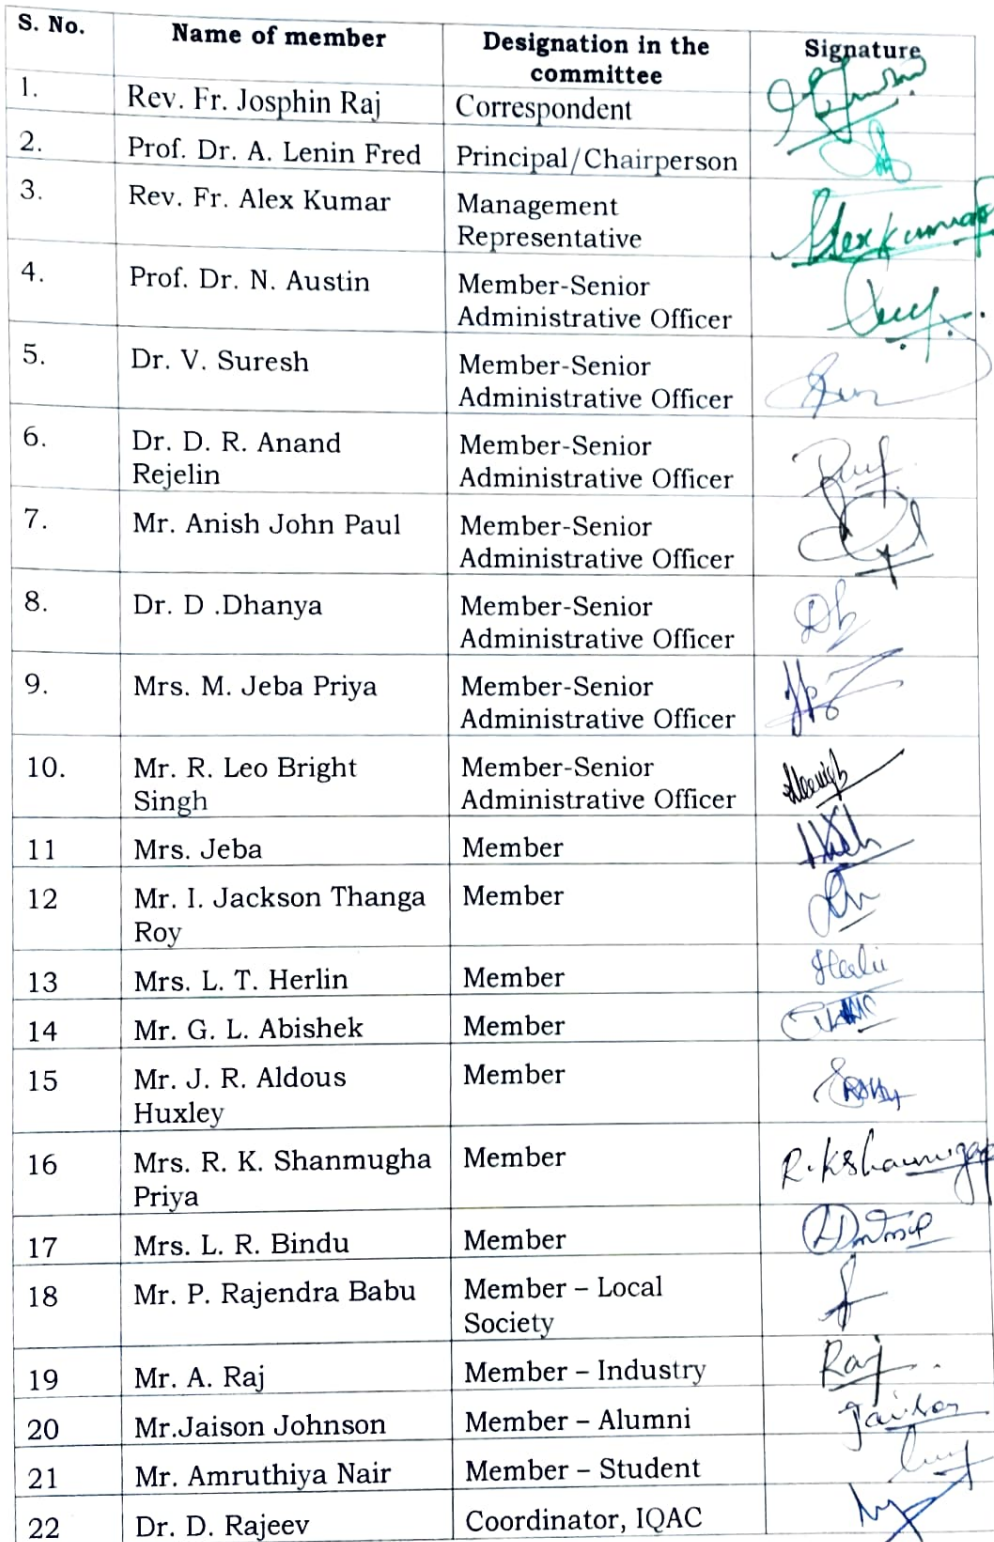 S. No. Name of member Designation in the Signature
committee
1. Rev. Fr. Josphin Raj Correspondent
2. Prof. Dr. A. Lenin Fred Principal/Chairperson
3. Rev. Fr. Alex Kumar Management
Representative Alexkumar
4. Prof. Dr. N. Austin Member-Senior
Administrative Officer
5. Dr. V. Suresh Member-Senior
Administrative Officer
6. Dr. D. R. Anand Member-Senior
Rejelin Administrative Officer
7. Mr. Anish John Paul Member-Senior
Administrative Officer
8. Dr. D .Dhanya Member-Senior
Administrative Officer
9. Mrs. M. Jeba Priya Member-Senior
Administrative Officer
10. Mr. R. Leo Bright Member-Senior
Singh Administrative Officer
11 Mrs. Jeba Member
12 Mr. I. Jackson Thanga Member
Roy
13 Mrs. L. T. Herlin Member
14 Mr. G. L. Abishek Member
15 Mr. J. R. Aldous Member
Huxley
16 Mrs. R. K. Shanmugha Member
Priya
17 Mrs. L. R. Bindu Member
18 Mr. P. Rajendra Babu Member – Local
Society
19 Mr. A. Raj Member – Industry Raj
20 Mr.Jaison Johnson Member – Alumni Jaison
21 Mr. Amruthiya Nair Member – Student
22 Dr. D. Rajeev Coordinator, IQAC